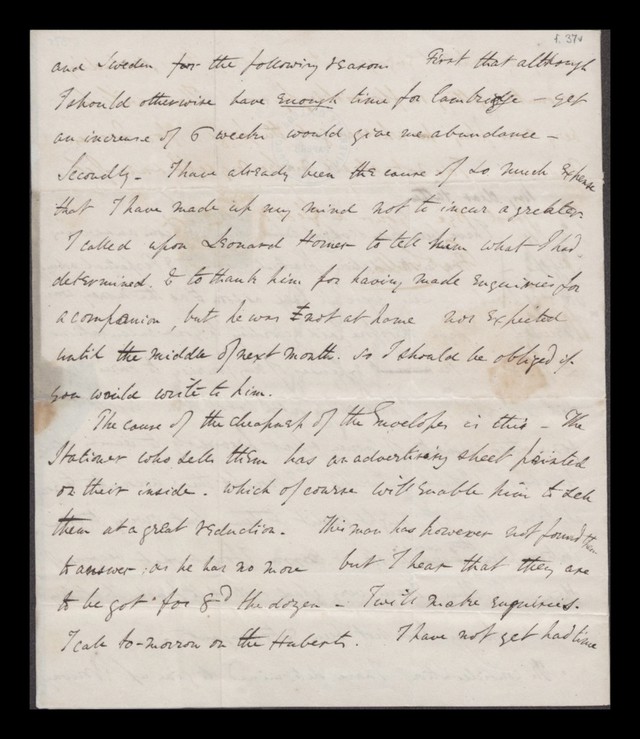 f. 37v
and Sweden for the following reasons First that although
I should otherwise have enough time for Cambridge – yet
an increase of 6 weeks would give me abundance –
Secondly – I have already been the cause of so much expense
that I have made up my mind not to incur a greater
I called upon Leonard Horner to tell him what I had
determined. & to thank him for having made enquiries for
a companion, but he was not at home nor expected
until the middle of next month. so I should be obliged if
you would write to him.
The cause of the cheapness of the Envelopes is this – The
Stationer who sells them has an advertising sheet printed
on their inside. which of course will enable him to sell
them at a great reduction. This man has however not found them
to answer: as he has no more but I hear that they are
to be got for 8d the dozen – I will make enquiries.
I call to-morrow on the Huberts. I have not yet had time